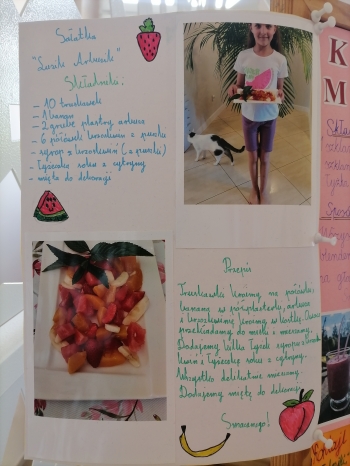 Sałatka
"Lusik Arbuzik"
Składniki:
- 10 truskawek
- 1 banan
- 2 grube plastry arbuza
- 6 połówek brzoskwini z puszki
- syrop z brzoskwiń (z puszki)
- łyżeczka soku z cytryny
- mięta do dekoracji
Przepis
Truskawki kroimy na połówki,
banany w półplasterki, arbuza
i brzoskwinię kroimy w kostkę. Owoce
przekładamy do miski i mieszamy.
Dodajemy kilka łyżek syropu z
i łyżeczkę soku z cytryny.
Wszystko delikatnie mieszamy.
Dodajemy miętę do dekoracji.
Smacznego!
K
M